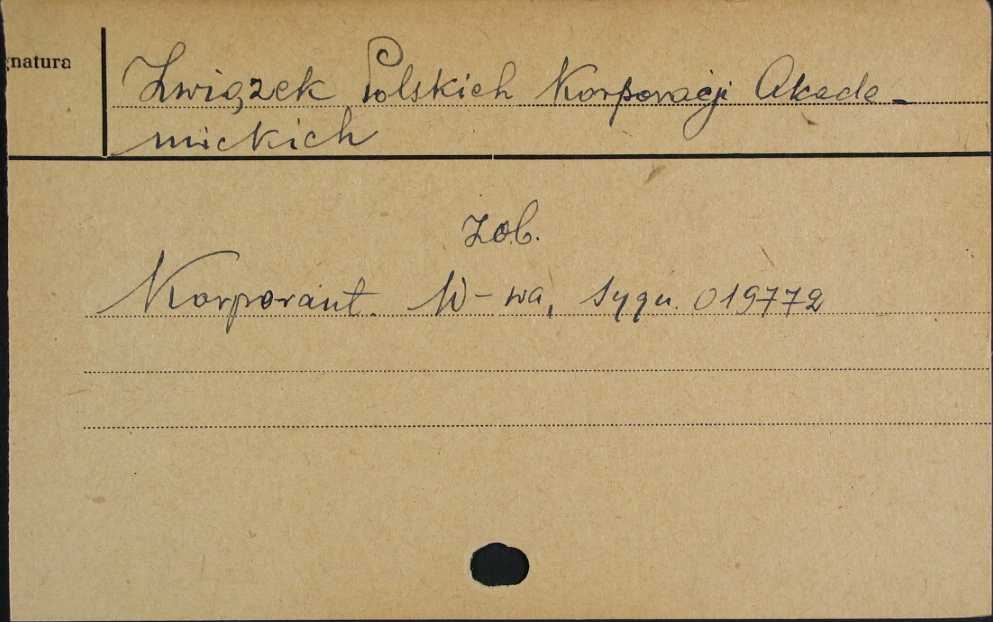 gnatura
Związek Polskich Korporacji Akade-
mickich
zob.
Korporant. W-wa, sygn. 019772